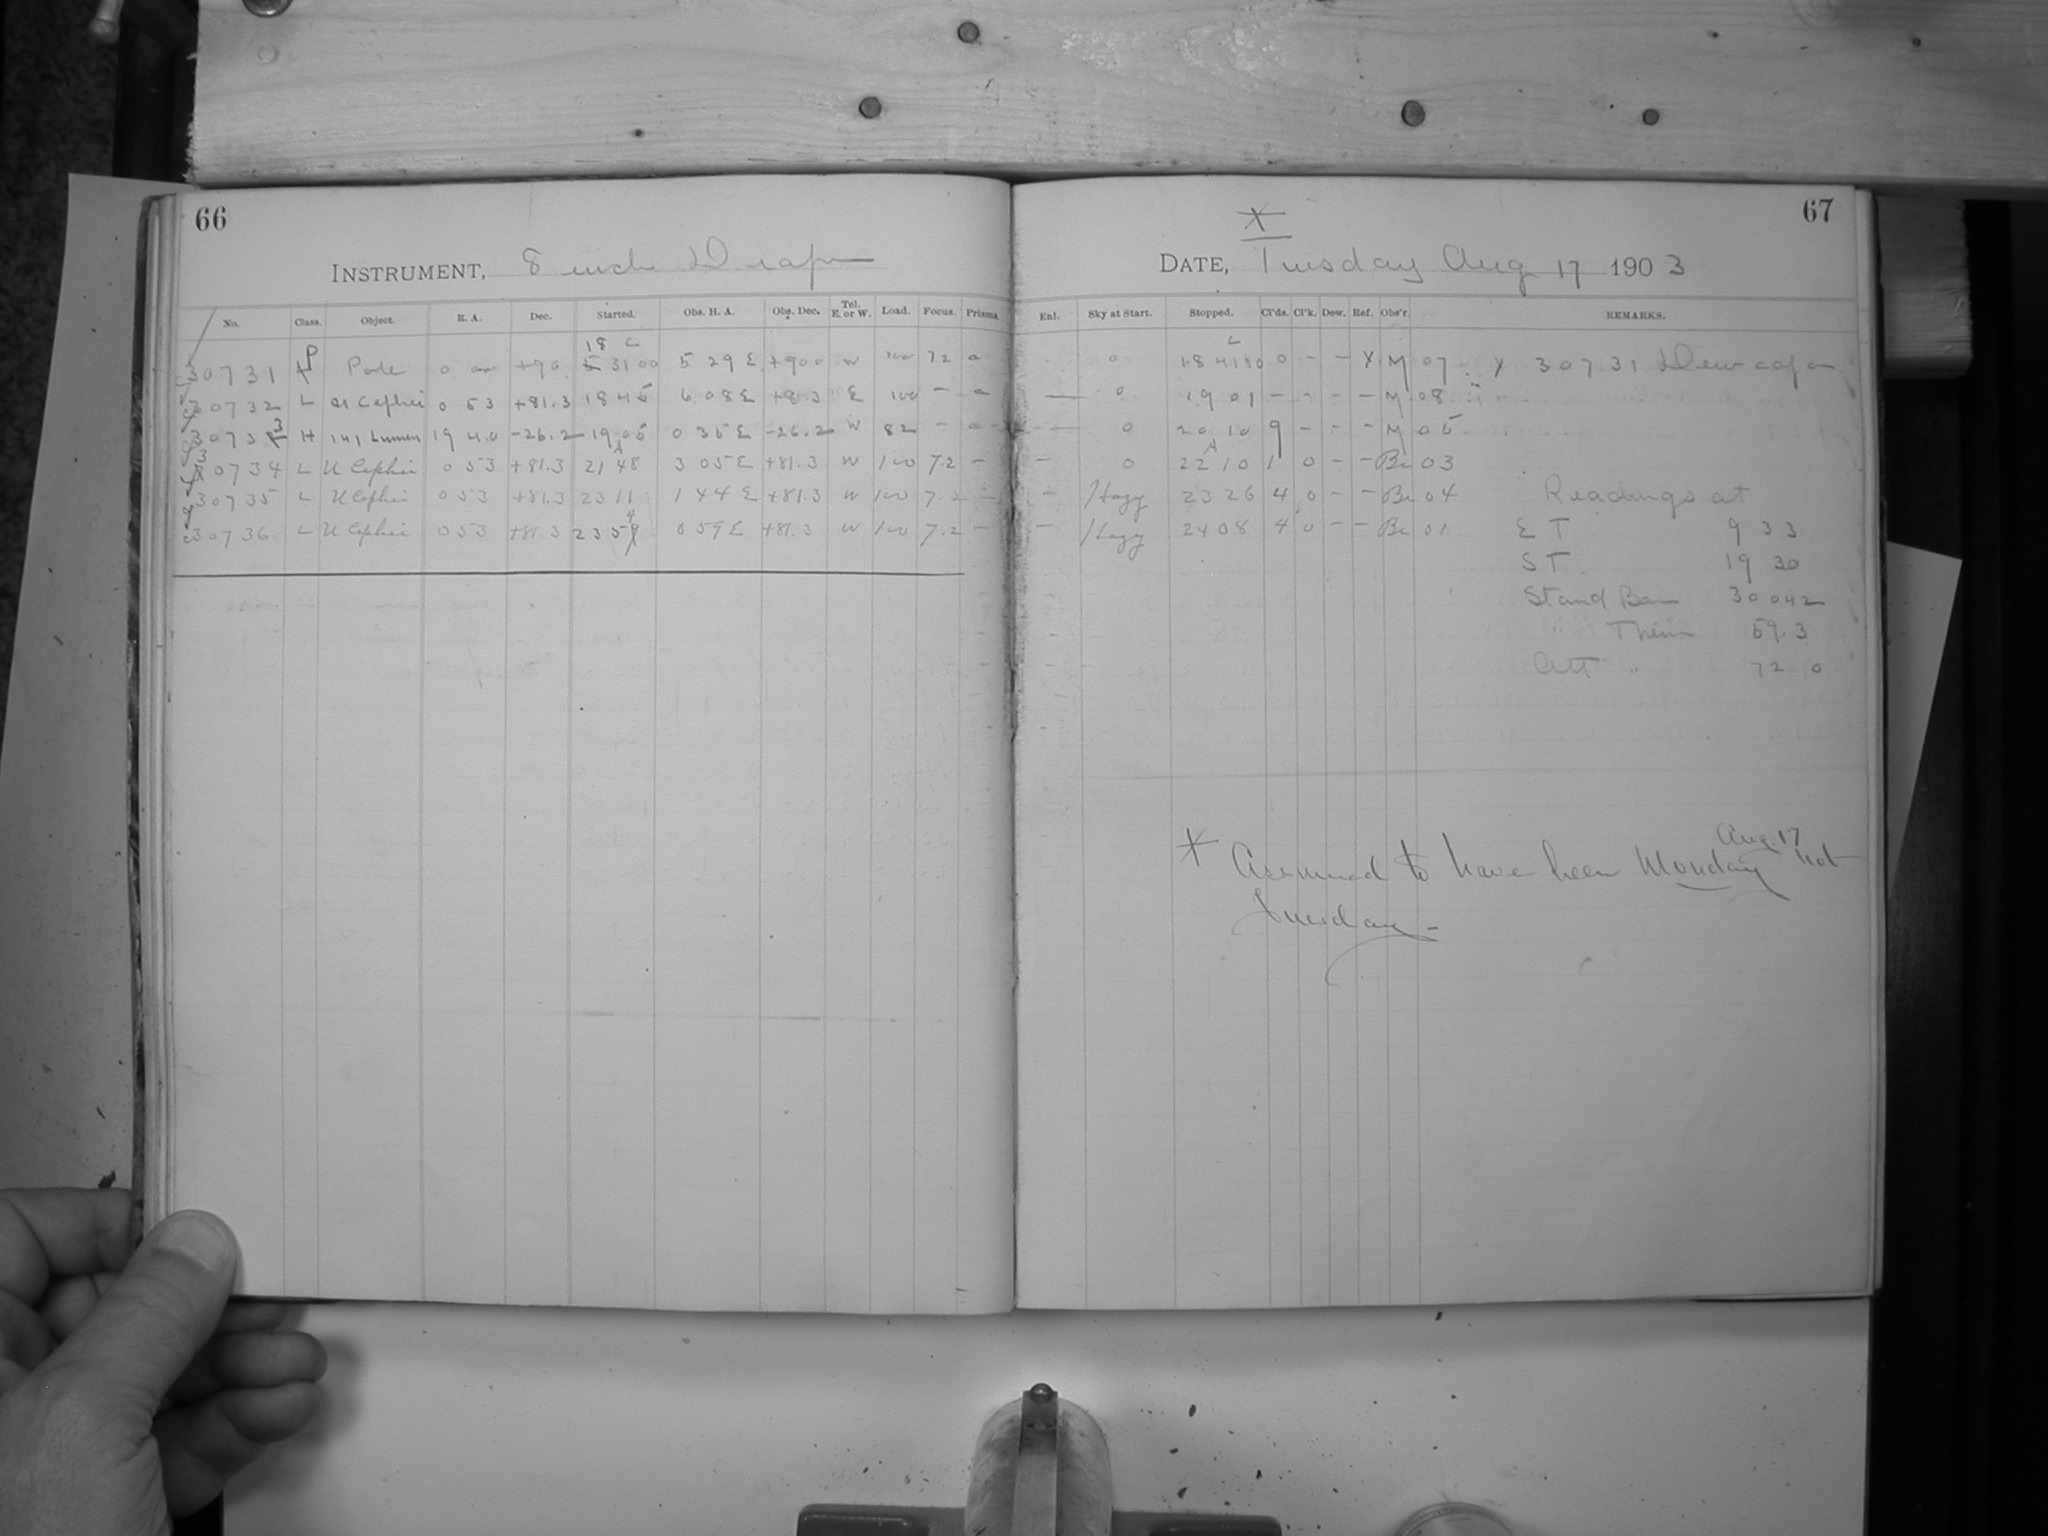 66
INSTRUMENT, 8 inch Draper
No. Class. Object. R. A. Dec. Started. Obs. H. A. Obs. Dec. Tel. E. or W. Load. Focus. Prisms.
30731 Pole 0 00 +90 18 31 00 5 29 E +90 0 W 100 7.2 0
30732 L U Cephei 0 53 +81.3 18 45 6 08 E +81.3 E 100 – 0
30733 H 141 19 40 –26.2 19 05 0 35 E –26.2 W 82 – 0
30734 L U Cephei 0 53 +81.3 21 48 3 05 E +81.3 W 100 7.2 –
30735 L U Cephei 0 53 +81.3 23 11 1 44 E +81.3 W 100 7.2 –
30736 L U Cephei 0 53 +81.3 23 54 0 59 E +81.3 W 100 7.2 –
67
DATE, Tuesday Aug 17 1903
Enl. Sky at Start. Stopped. Cl'ds. Cl'k. Dew. Ref. Obs'r. REMARKS.
– 0 18 41 10 0 – – X M 07 X 30731 Dew cap on
– 0 19 01 – – – – M 08
– 0 20 10 9 – – – M 05
– 0 22 10 1 0 – – Br 03
– Hazy 23 26 4 0 – – Br 04 Readings at
– Hazy 24 08 4 0 – – Br 01 E T 9 33
S T 19 30
Stand Bar 30 042
" Ther 59.3
Att " 72 0
* Assumed to have been Monday Aug. 17 not
Tuesday –